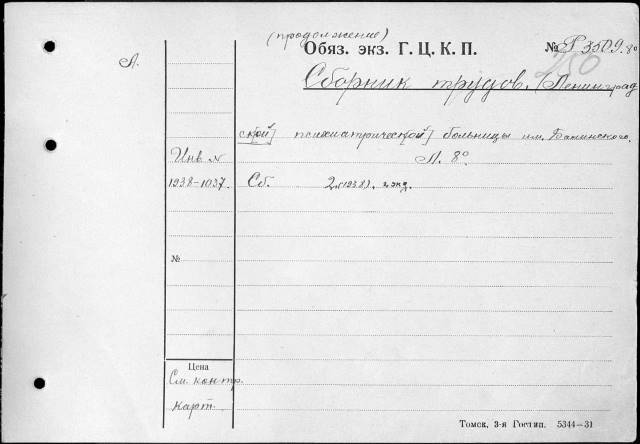 (продолжение)
Обяз. экз. Г. Ц. К. П.
№ П 3509.80
Л.
Сборник трудов. (Ленинград
ск[ой] психиатрическ[ой] больницы им. Балинского.
Л. 8°
Инв. №
1938-1037.
Сб. 2. (1938). 2 экз.
№
Цена
См. контр.
карт.
Томск, 3-я Гостип. 5344—31